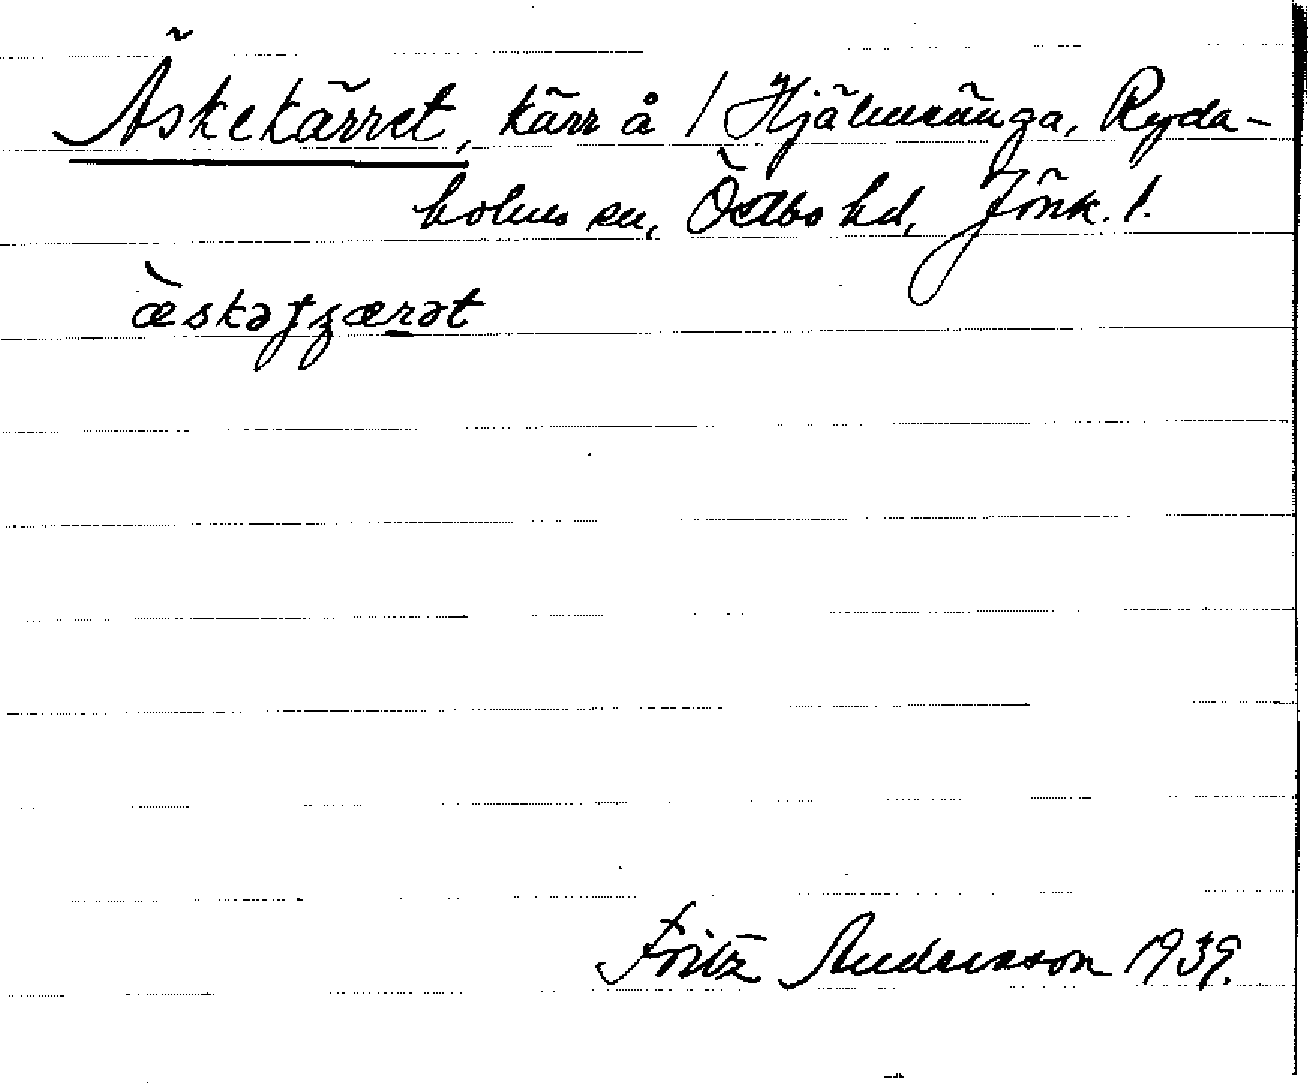 Äskekärret, kärr å / Hjälmänga, Ryda-
holms sn, Östbo hd, Jönk. l.
æ̀skəʃʒærət
Fritz Andersson 1939.